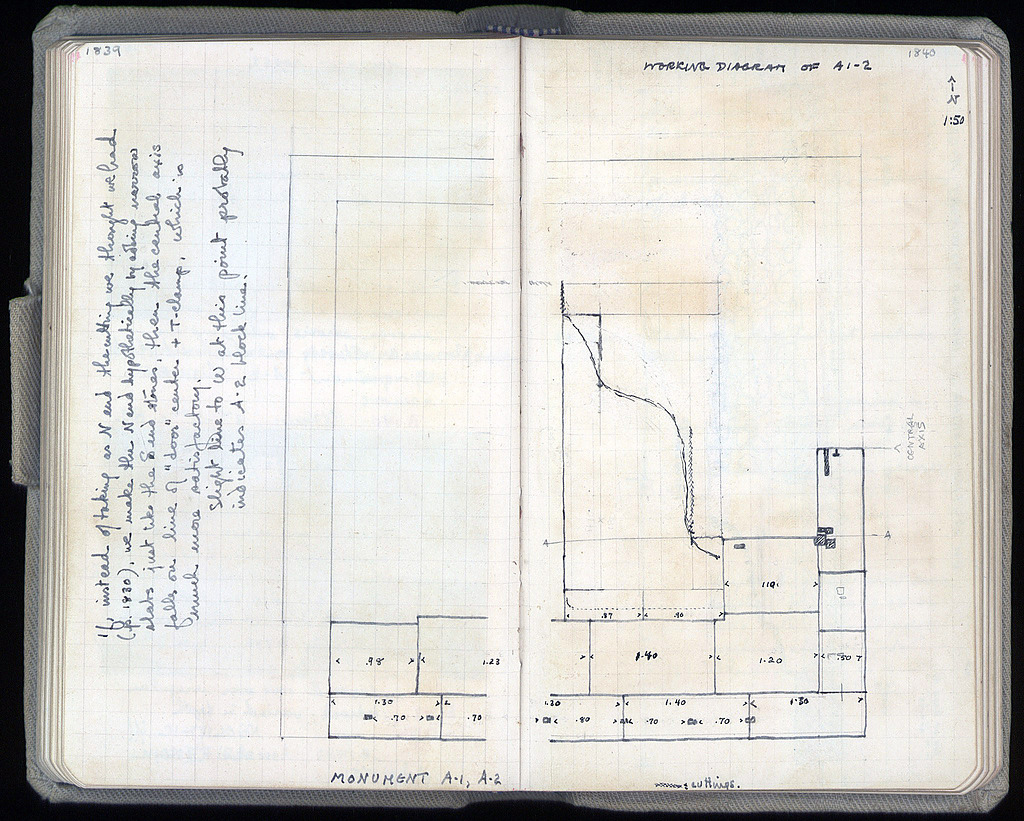 1839
If, instead of taking as N end the cutting we thought we had
(p. 1830), we make the N end hypothetically by adding narrow
slabs just like the S end stones, then the central axis
falls on line of "door" center + T-clamp, which is
much more satisfactory.
Slight line to W at this point probably
indicates A-2 block line.
MONUMENT A-1, A-2
1840
WORKING DIAGRAM OF A1-2
N
1:50
CENTRAL
AXIS
A
A
1.10
.87
.90
.98
1.23
1.40
1.20
.50
1.30
1.20
1.40
1.30
.70
.70
.80
.70
.70
cuttings.